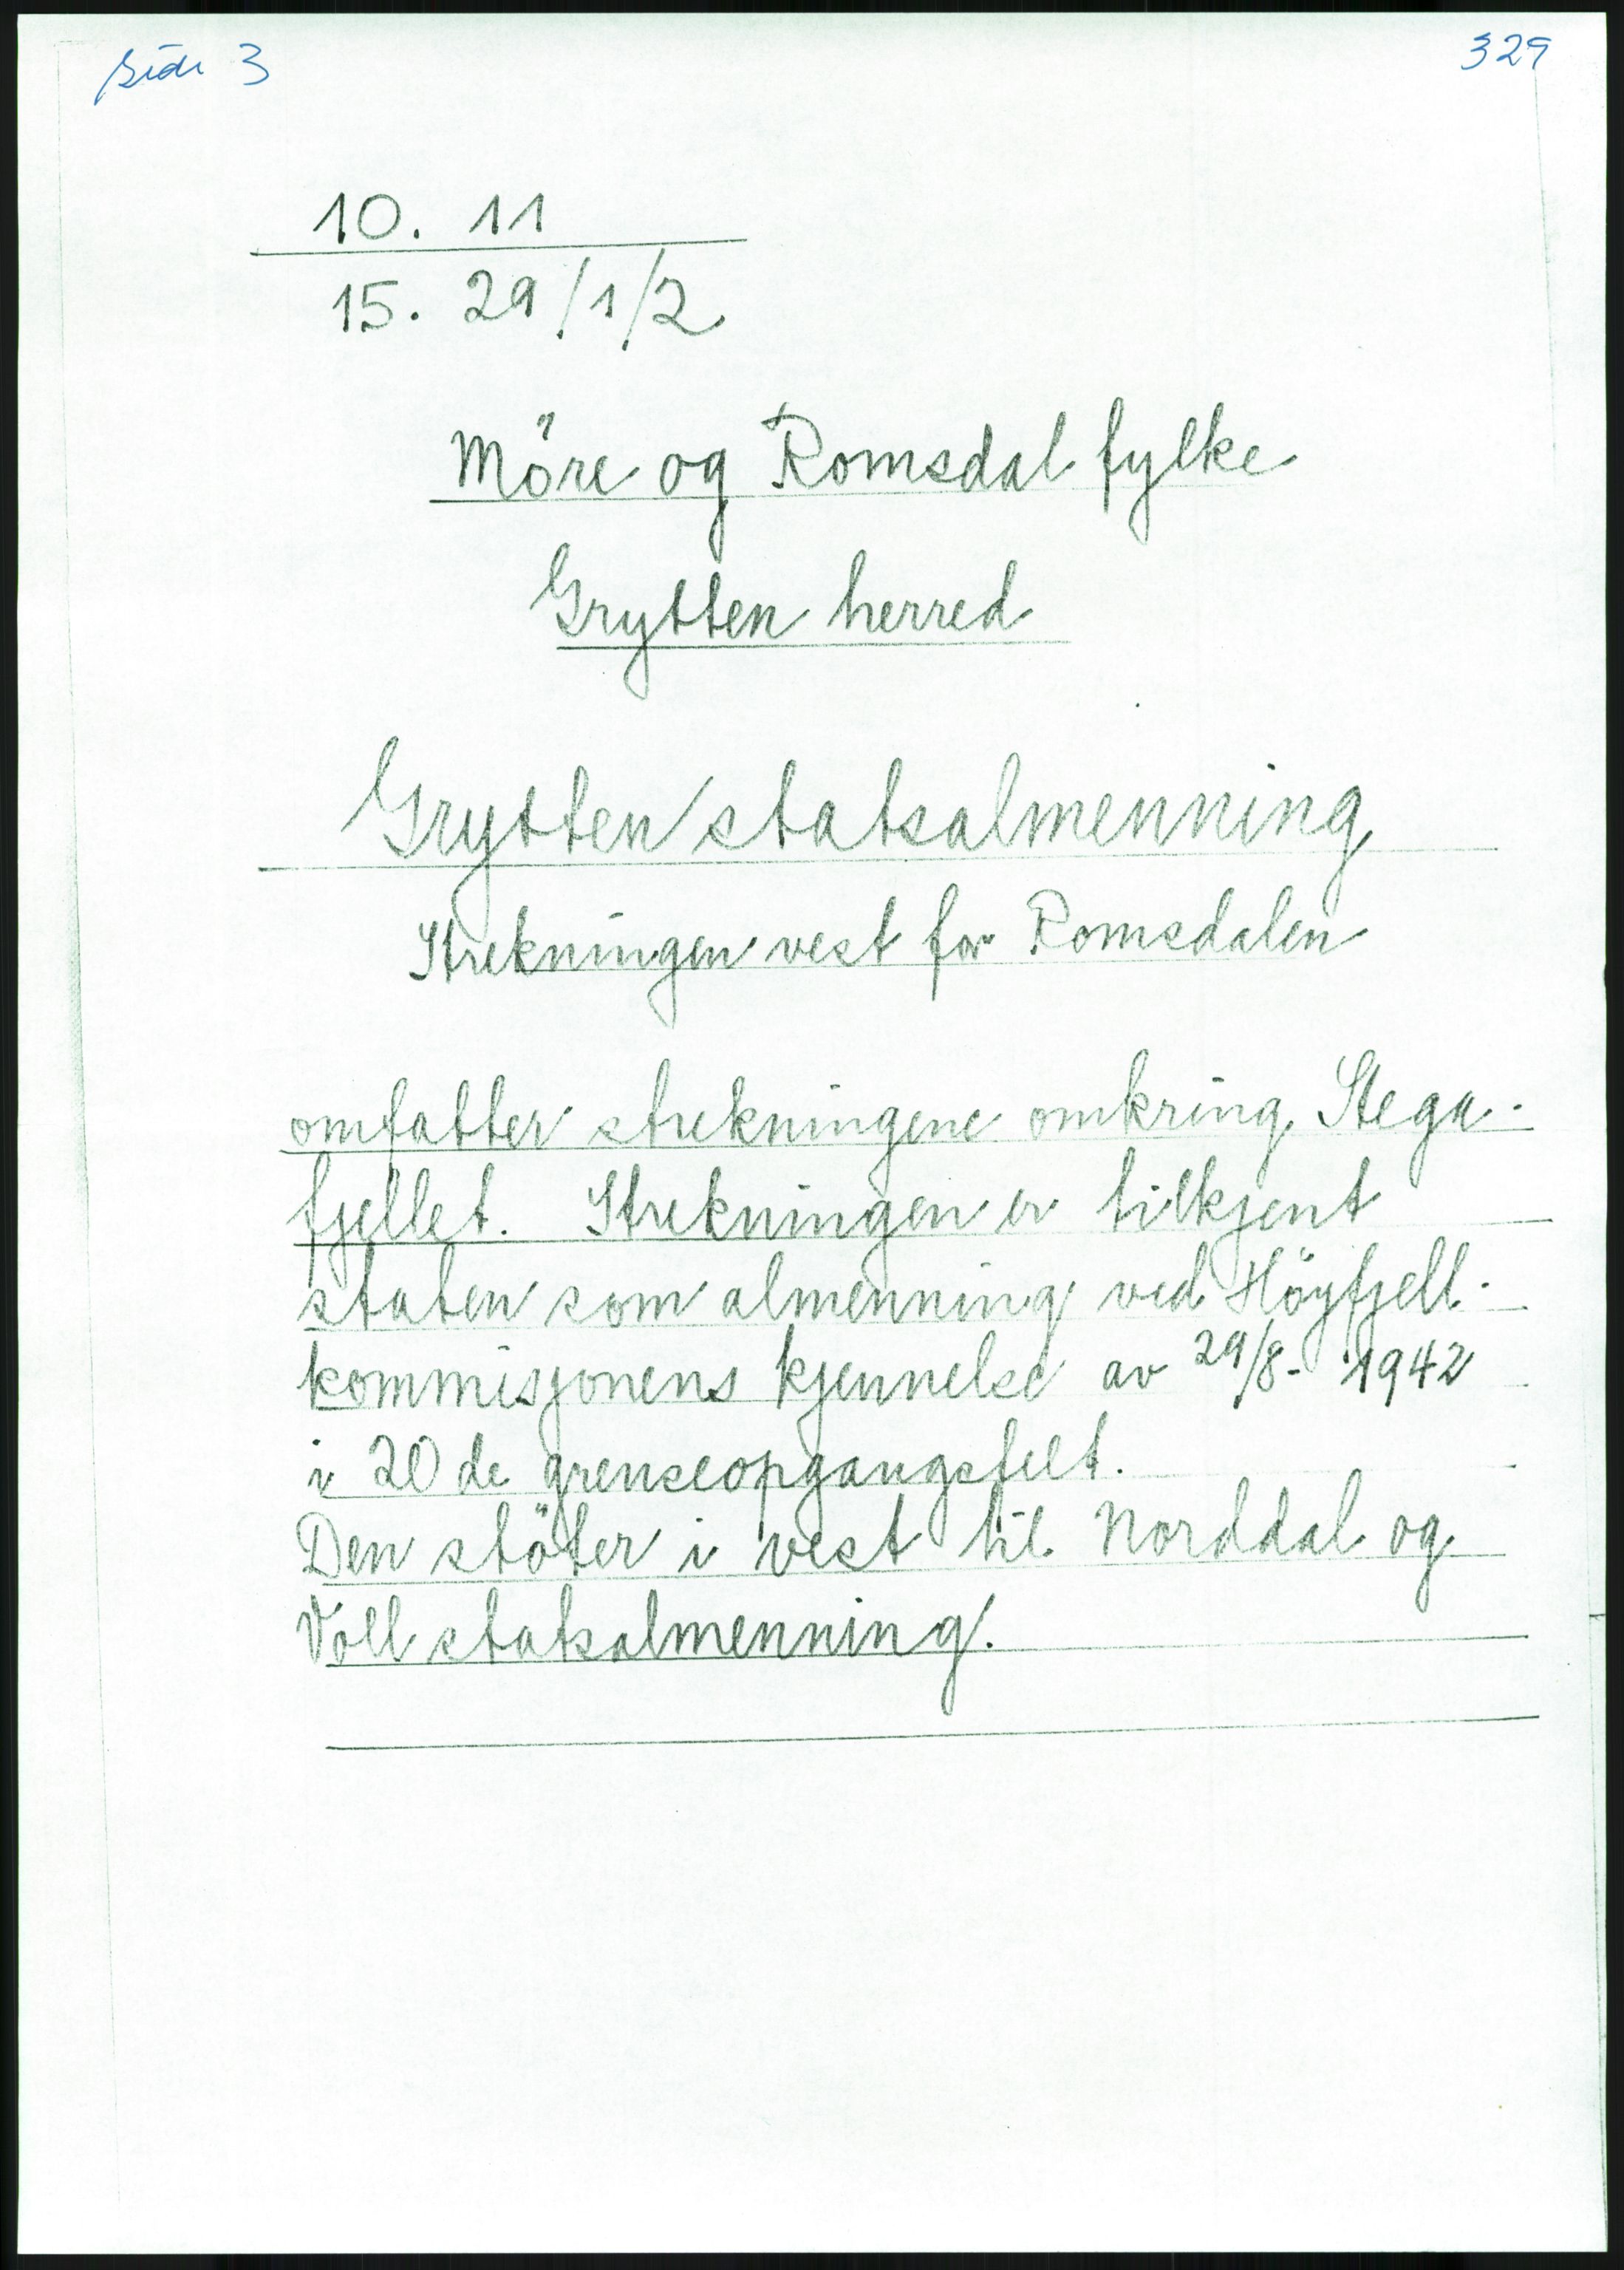 side 3
329
10. 11
15. 29/1/2
Möre og Romsdal fylke
Grytten herred
Grytten statsalmenning
Strekningen vest for Romsdalen
omfatter strekningene omkring Stega-
fjellet. Strekningen er tilkjent
staten som almenning ved Höyfjell-
kommisjonens kjennelse av 29/8- 1942
i 20de grenseopgangsfelt.
Den stöter i vest til Norddal og
Voll statsalmenning.